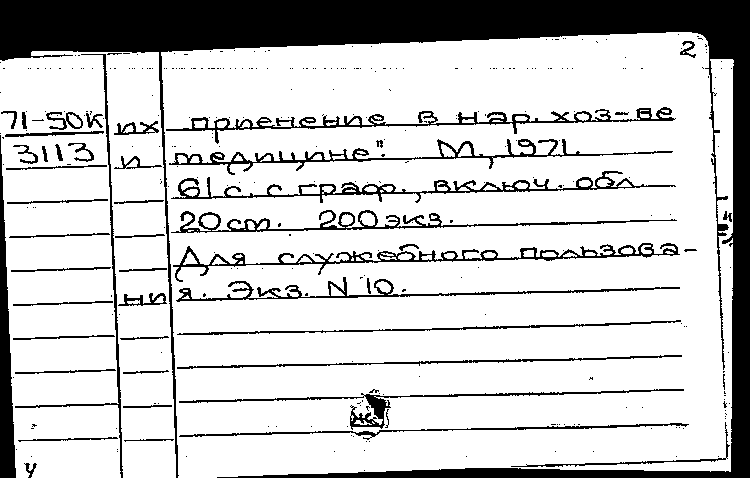 2
71-50К их применение в нар. хоз-ве
3113 и медицине". М., 1971.
61 с. с граф., включ. обл.
20 см. 200 экз.
Для служебного пользова-
ния. Экз. N 10.